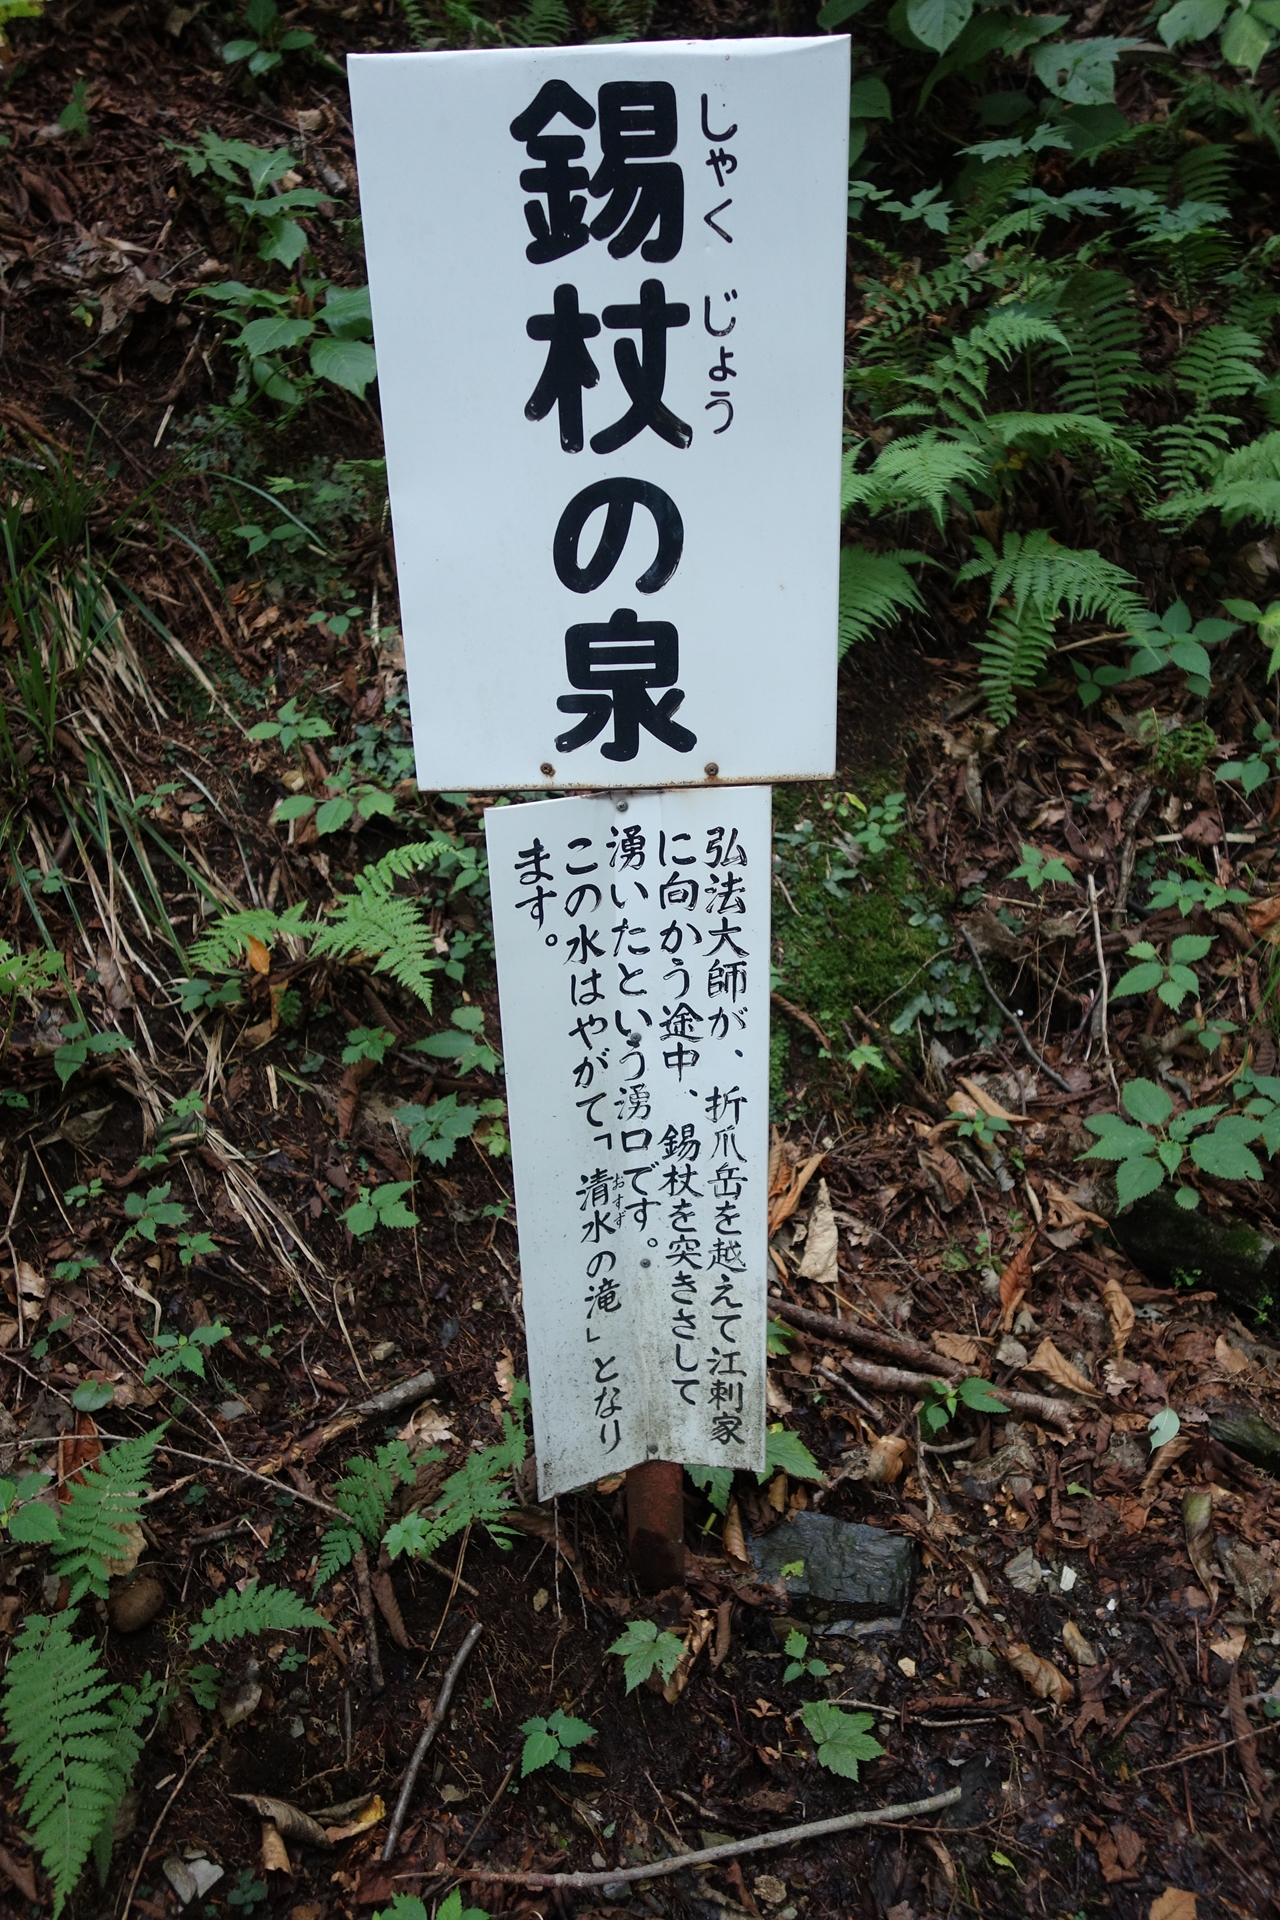 錫杖の泉
しゃくじょう
弘法大師が、折爪岳を越えて江刺家
に向かう途中、錫杖を突きさして
湧いたという湧口です。
この水はやがて「清水の滝」となり
おすず
ます。